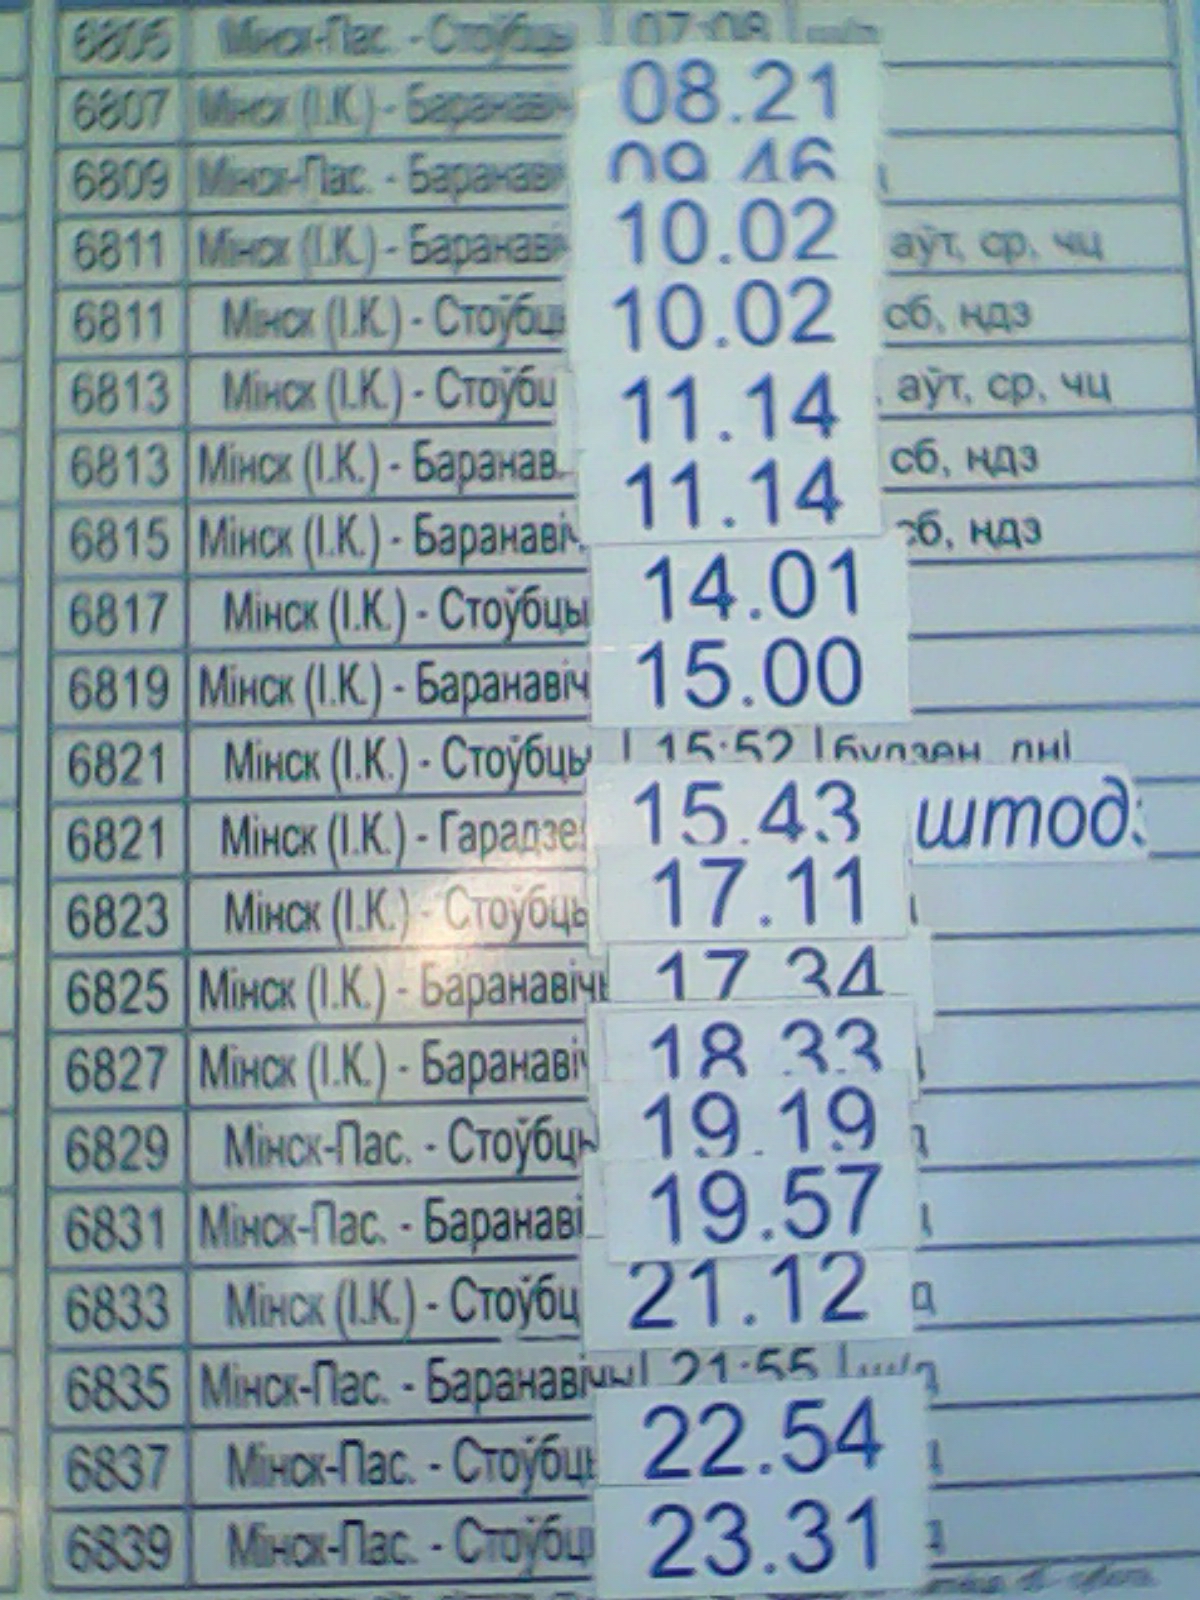 6805 Мінск-Пас. - Стоўбцы 07:08
6807 Мінск (І.К.) - Баранавіч 08.21
6809 Мінск-Пас. - Баранаві 09.46
6811 Мінск (І.К.) - Баранаві 10.02 аўт, ср, чц
6811 Мінск (І.К.) - Стоўбц 10.02 сб, ндз
6813 Мінск (І.К.) - Стоўбц 11.14 аўт, ср, чц
6813 Мінск (І.К.) - Баранав 11.14 сб, ндз
6815 Мінск (І.К.) - Баранавіч сб, ндз
6817 Мінск (І.К.) - Стоўбцы 14.01
6819 Мінск (І.К.) - Баранавіч 15.00
6821 Мінск (І.К.) - Стоўбцы 15:52 будзён. дні
6821 Мінск (І.К.) - Гарадзе 15.43 штод.
6823 Мінск (І.К.) - Стоўбць 17.11
6825 Мінск (І.К.) - Баранавічы 17.34
6827 Мінск (І.К.) - Баранавіч 18.33
6829 Мінск-Пас. - Стоўбць 19.19
6831 Мінск-Пас. - Баранаві 19.57
6833 Мінск (І.К.) - Стоўбц 21.12
6835 Мінск-Пас. - Баранавічы 21:55
6837 Мінск-Пас. - Стоўбць 22.54
6839 Мінск-Пас. - Стоўбц 23.31